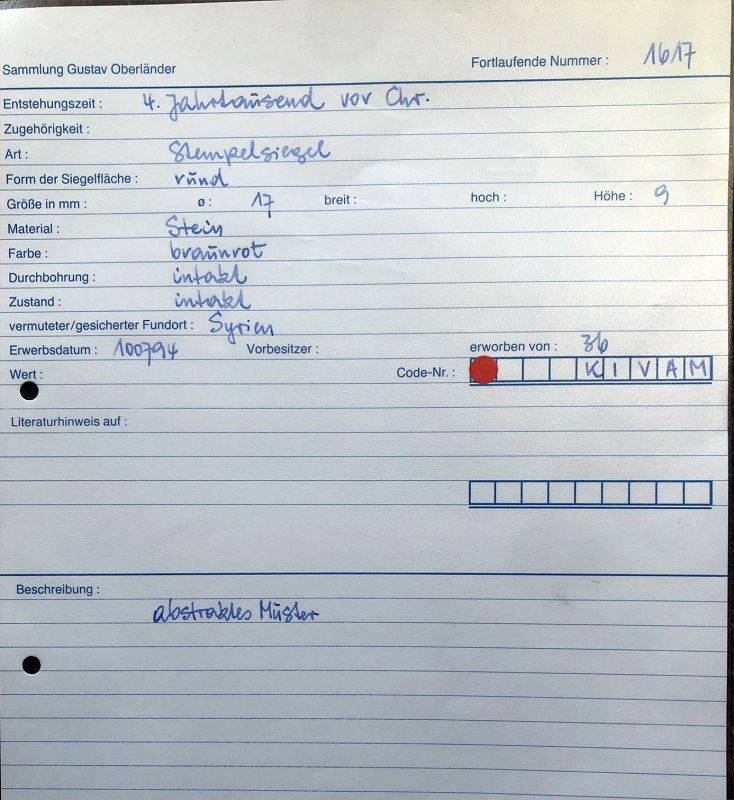 Sammlung Gustav Oberländer Fortlaufende Nummer : 1617
Entstehungszeit : 4. Jahrtausend vor Chr.
Zugehörigkeit :
Art : Stempelsiegel
Form der Siegelfläche : rund
Größe in mm : ø : 17 breit : hoch : Höhe : 9
Material : Stein
Farbe : braunrot
Durchbohrung : intakt
Zustand : intakt
vermuteter/gesicherter Fundort : Syrien
Erwerbsdatum : 100794 Vorbesitzer : erworben von : 36
Wert : Code-Nr. : KIVAM
Literaturhinweis auf :
Beschreibung :
abstraktes Muster